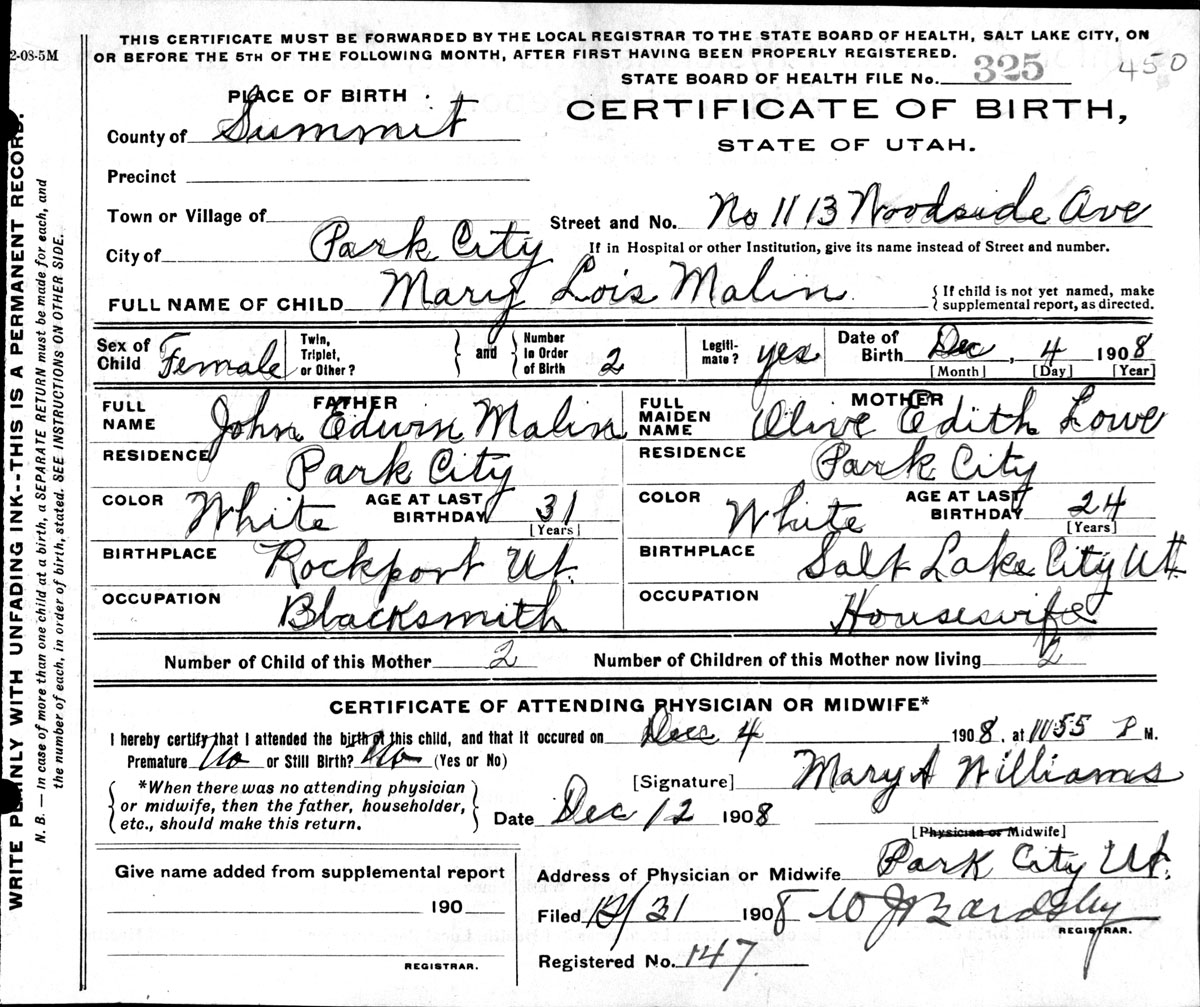 THIS CERTIFICATE MUST BE FORWARDED BY THE LOCAL REGISTRAR TO THE STATE BOARD OF HEALTH, SALT LAKE CITY, ON
OR BEFORE THE 5TH OF THE FOLLOWING MONTH, AFTER FIRST HAVING BEEN PROPERLY REGISTERED.
2-08-5M
STATE BOARD OF HEALTH FILE No. 325 450
PLACE OF BIRTH
CERTIFICATE OF BIRTH,
STATE OF UTAH.
County of Summit
Precinct
Town or Village of
Street and No. No 1113 Woodside Ave
City of Park City
If in Hospital or other Institution, give its name instead of Street and number.
FULL NAME OF CHILD Mary Lois Malin
{ If child is not yet named, make
{ supplemental report, as directed.
Sex of Child Female
Twin, Triplet, or Other?
and
Number in Order of Birth 2
Legiti-mate? yes
Date of Birth Dec, 4 1908
[Month] [Day] [Year]
FATHER
FULL NAME John Edwin Malin
MOTHER
FULL MAIDEN NAME Olive Edith Lowe
RESIDENCE Park City
RESIDENCE Park City
COLOR White AGE AT LAST BIRTHDAY 31 [Years]
COLOR White AGE AT LAST BIRTHDAY 24 [Years]
BIRTHPLACE Rockport Ut.
BIRTHPLACE Salt Lake City Ut.
OCCUPATION Blacksmith
OCCUPATION Housewife
Number of Child of this Mother 2 Number of Children of this Mother now living 2
CERTIFICATE OF ATTENDING PHYSICIAN OR MIDWIFE*
I hereby certify that I attended the birth of this child, and that it occured on Dec 4 1908, at 11.55 P M.
Premature No or Still Birth? No (Yes or No)
[Signature] Mary A Williams
*When there was no attending physician
or midwife, then the father, householder,
etc., should make this return.
Date Dec 12 1908
[Physician or Midwife]
Address of Physician or Midwife Park City Ut.
Give name added from supplemental report
190
REGISTRAR.
Filed 12/31 1908 W J Bardsley
REGISTRAR.
Registered No. 147
WRITE PLAINLY WITH UNFADING INK--THIS IS A PERMANENT RECORD.
N. B. — In case of more than one child at a birth, a SEPARATE RETURN must be made for each, and
the number of each, in order of birth, stated. SEE INSTRUCTIONS ON OTHER SIDE.